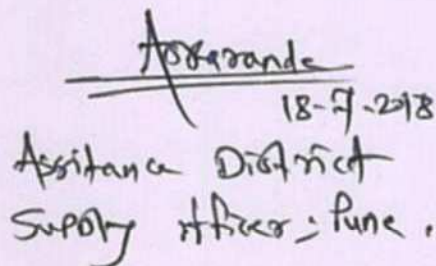 18-7-2018
Assitance District
Supply officer, Pune.